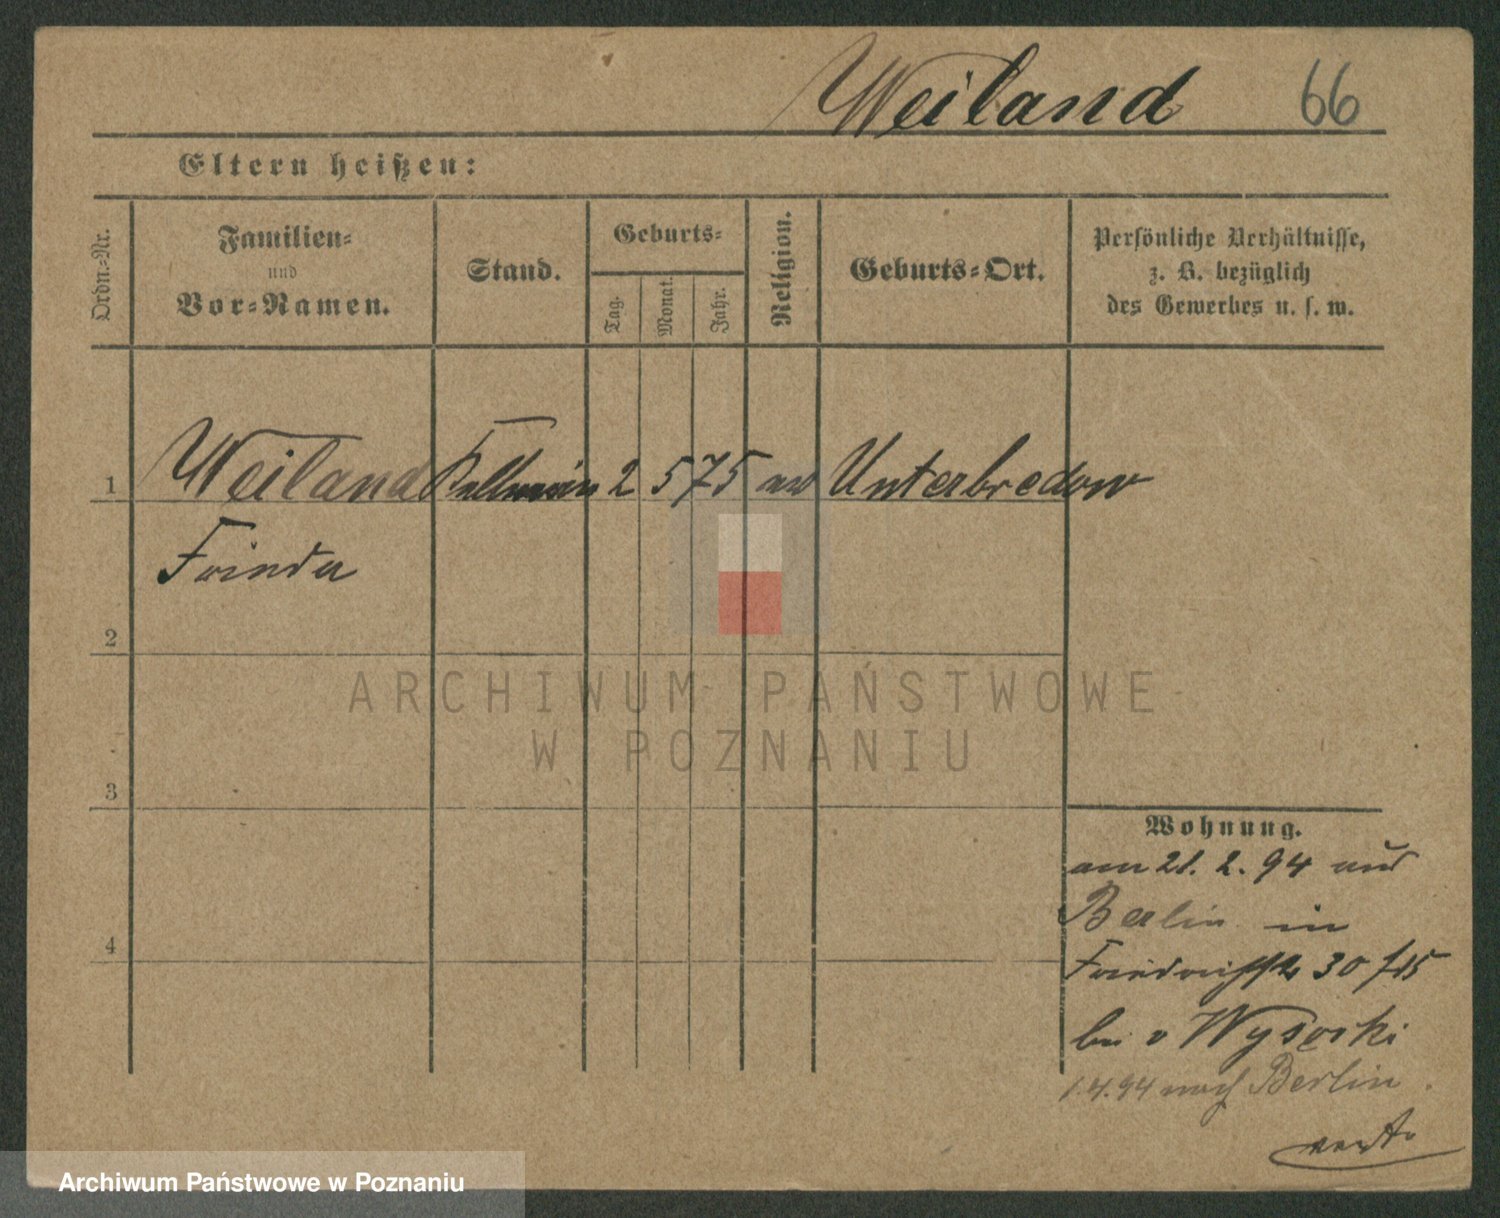 Weiland 66
Eltern heißen:
Ordn.-Nr.
Familien-
und
Vor-Namen.
Stand.
Geburts-
Tag.
Monat.
Jahr.
Religion.
Geburts-Ort.
Persönliche Verhältnisse,
z. B. bezüglich
des Gewerbes u. s. w.
1 Weiland Kellnerin 2 5 75 ev Unterbredow
Frieda
2
3
4
Wohnung.
am 21. 2. 94 aus
Berlin in
Friedrichstr 30
bei v Wysocki
1.4.94 nach Berlin.
ARCHIWUM PAŃSTWOWE
W POZNANIU
Archiwum Państwowe w Poznaniu